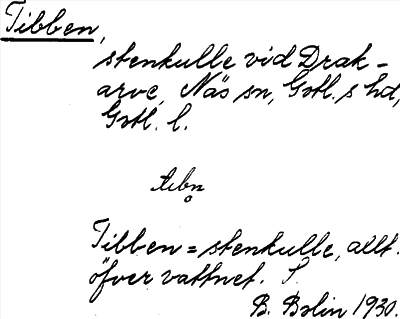 Tibben,
stenkulle vid Drak-
arve, Näs sn, Gotl. s hd,
Gotl. l.
tıbn̥
Tibben = stenkulle, allt.
öfver vattnet. S.
B. Bolin 1930.